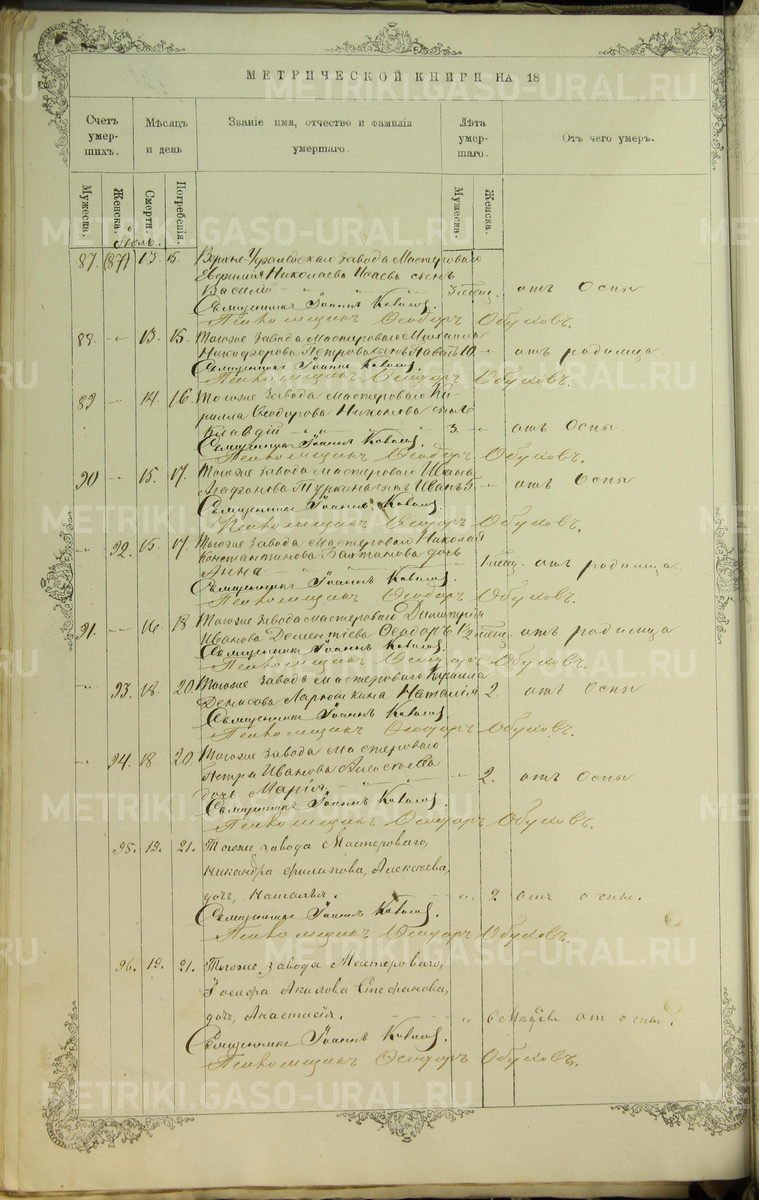 МЕТРИЧЕСКОЙ КНИГИ НА 18
Счетъ умер- шихъ.
Мѣсяцъ и день
Званіе имя, отчество и фамилія умершаго.
Лѣта умер- шаго.
Отъ чего умеръ.
Мужеска.
Женска.
Смерти.
Погребенія.
Мужеска.
Женска.
Іюль.
87. (87) 13 15. Верхне-Уфалейскаго завода Мастероваго
Евфимія Николаева Исаева сынъ
Василій 3 месяц. отъ Оспы
Священникъ Іоаннъ
Псаломщикъ Ѳеодоръ Обуховъ.
88. 13. 15. Тогоже завода мастероваго Михаила
Никифорова Петрова сынъ Павелъ 10. отъ родимца
Священникъ Іоаннъ
Псаломщикъ Ѳеодоръ Обуховъ.
89 14. 16. Тогоже Завода мастероваго Ки-
рилла Ѳеодорова Никонова сынъ
Клавдій 3. отъ Оспы.
Священникъ Іоаннъ
Псаломщикъ Ѳеодоръ Обуховъ.
90 15. 17. Тогоже завода мастероваго Ивана
Агафонова Туркина сынъ Иванъ 5 отъ Оспы
Священникъ Іоаннъ
Псаломщикъ Ѳеодоръ Обуховъ.
92. 15 17 Тогоже Завода мастероваго Николая
Константинова дочь
Анна 1 месяц. отъ родимца
Священникъ Іоаннъ
Псаломщикъ Ѳеодоръ Обуховъ.
91. 16. 18 Тогоже Завода мастероваго Димитрія
Иванова Дементіева Ѳеодоръ 1/2 месяц. отъ родимца
Священникъ Іоаннъ
Псаломщикъ Ѳеодоръ Обуховъ.
93. 18. 20. Тогоже Завода мастероваго Кирилла
Денисова Ларюшкина Наталія 2. отъ Оспы
Священникъ Іоаннъ
Псаломщикъ Ѳеодоръ Обуховъ.
94. 18 20. Тогоже Завода Мастероваго
Петра Иванова
дочь Марія. 2. отъ Оспы
Священникъ Іоаннъ
Псаломщикъ Ѳеодоръ Обуховъ.
95. 19. 21. Тогоже завода Мастероваго,
Никандра Филипова, Алексѣева,
дочь, Наталья. 2 отъ оспы.
Священникъ Іоаннъ
Псаломщикъ Ѳеодоръ Обуховъ.
96. 19. 21. Тогоже завода Мастероваго,
Іосифа Акилова Стефанова,
дочь, Анастасія. 6 отъ оспы.
Священникъ Іоаннъ
Псаломщикъ Ѳеодоръ Обуховъ.
METRIKI.GASO-URAL.RU